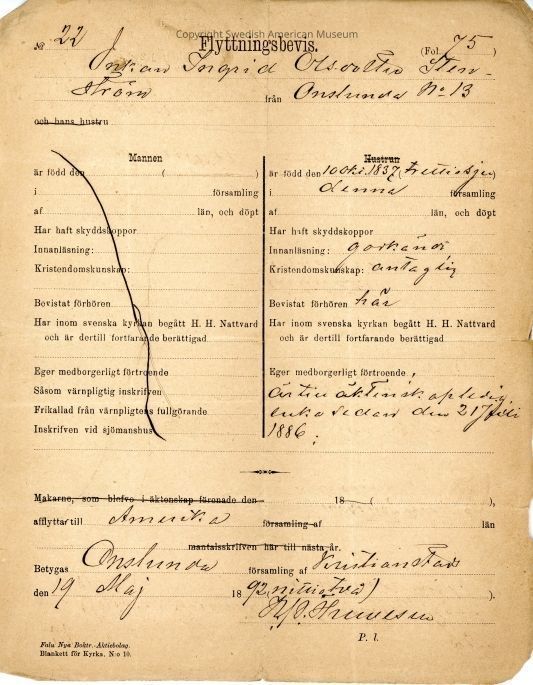 Copyright Swedish American Museum
№ 22 Flyttningsbevis. (Fol. 75)
Enkan Ingrid Olsdotter Sten-
ström från Onslunda No 13
och hans hustru
Mannen
är född den
i församling
af län, och döpt
Har haft skyddskoppor
Innanläsning:
Kristendomskunskap:
Bevistat förhören
Har inom svenska kyrkan begått H. H. Nattvard
och är dertill fortfarande berättigad
Eger medborgerligt förtroende
Såsom värnpligtig inskrifven
Frikallad från värnpligtens fullgörande
Inskrifven vid sjömanshus
Hustrun
är född den 10 Okt. 1837 (trettiosju)
i denna församling
af län, och döpt
Har haft skyddskoppor
Innanläsning: godkänd
Kristendomskunskap: antaglig
Bevistat förhören här
Har inom svenska kyrkan begått H. H. Nattvard
och är dertill fortfarande berättigad
Eger medborgerligt förtroende,
är till äktenskap ledig,
enka sedan den 21 Juli
1886;
Makarne, som blefvo i äktenskap förenade den 18 ( ),
afflyttar till Amerika församling af län
mantalsskrifven här till nästa år.
Betygas Onslunda församling af Kristianstads
den 19 Maj 1892 (nittiotvå) ).
P. l.
Falu Nya Boktr.-Aktiebolag.
Blankett för Kyrka. N:o 10.